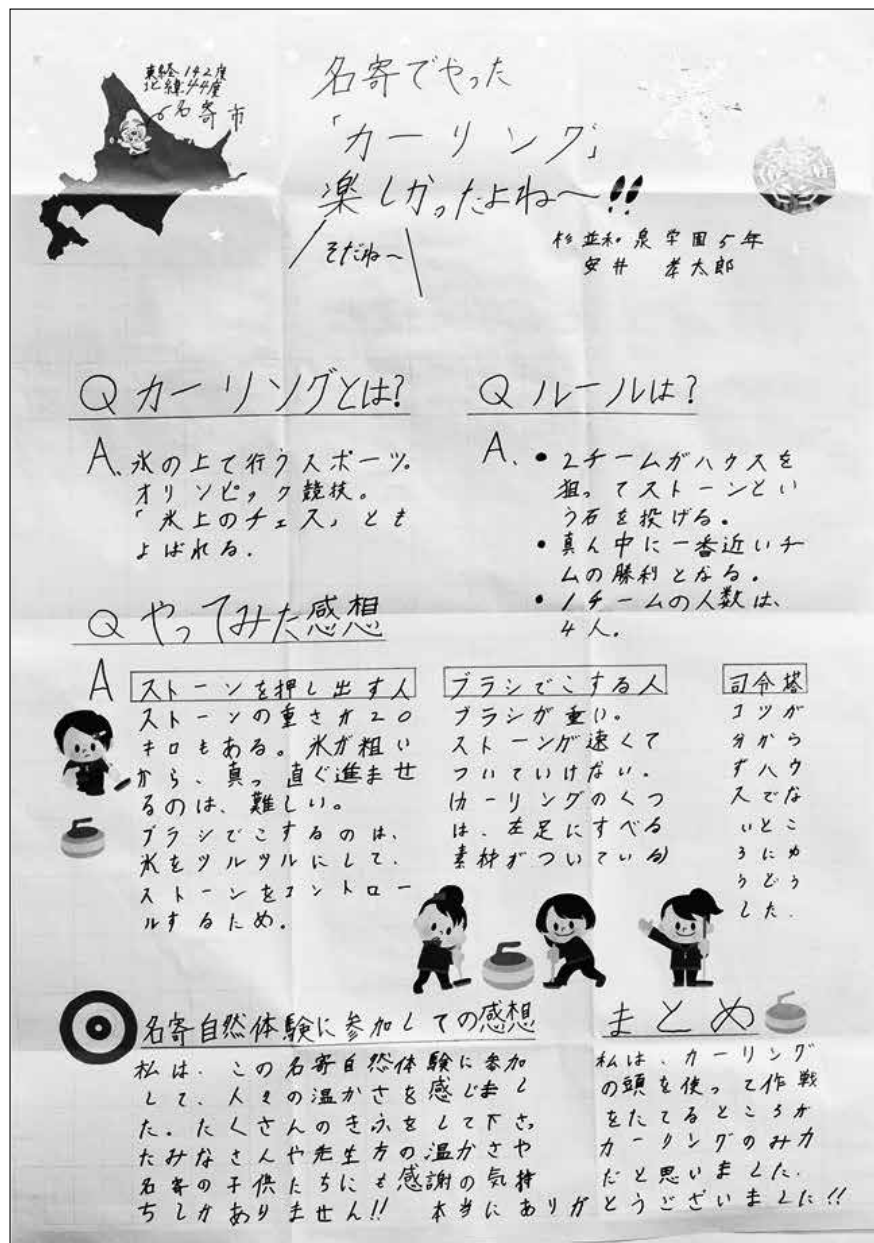 東経142度
北緯44度
名寄市
名寄でやった
「カーリング」
楽しかったよね〜!!
そだね〜
杉並和泉学園5年
安井 孝太郎
Q カーリングとは?
A、氷の上で行うスポーツ。
オリンピック競技。
「氷上のチェス」とも
よばれる.
Q ルールは?
A、• 2チームがハウスを
狙ってストーンとい
う石を投げる。
• 真ん中に一番近いチー
ムの勝利となる。
• 1チームの人数は、
4人.
Q やってみた感想
A ストーンを押し出す人
ストーンの重さが20
キロもある。氷が粗い
から、真っ直ぐ進ませ
るのは、難しい。
ブラシでこするのは、
氷をツルツルにして、
ストーンをコントロー
ルするため.
ブラシでこする人
ブラシが重い。
ストーンが速くて
ついていけない.
(カーリングのくつ
は、左足にすべる
素材がついている)
司令塔
コツが
分から
ずハウ
スでな
いとこ
ろにゆ
うどう
した.
名寄自然体験に参加しての感想
私は、この名寄自然体験に参加
して、人々の温かさを感じまし
た.たくさんのきふをして下さっ
たみなさんや先生方の温かさや
名寄の子供たちにも感謝の気持
ちしかありません!! 本当にありがとうございました!!
まとめ
私は、カーリング
の頭を使って作戦
をたてるところが
カーリングのみ力
だと思いました.